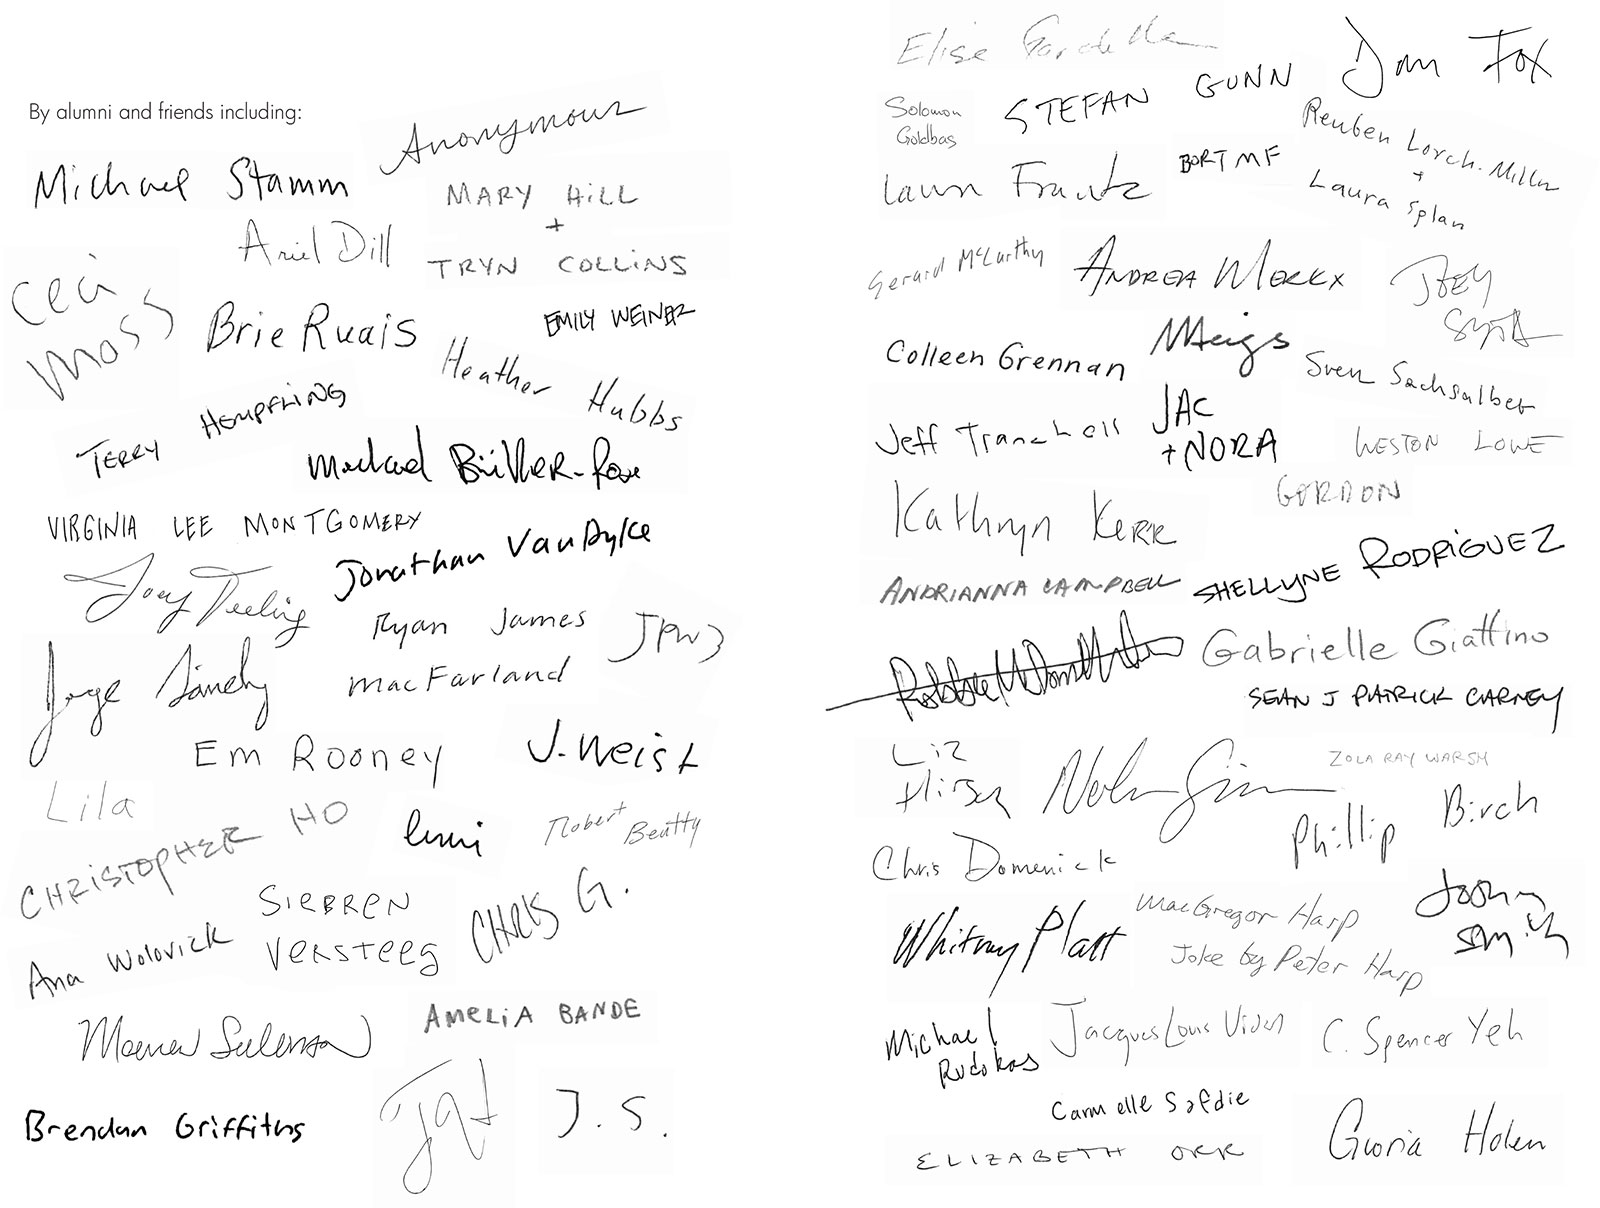 By alumni and friends including:
Anonymous
Michael Stamm
MARY HILL
+
TRYN COLLINS
Ariel Dill
Ceci
Moss
Brie Ruais
EMILY WEINER
Heather Hubbs
TERRY HEMPFLING
Michael Bühler-Rose
VIRGINIA LEE MONTGOMERY
Jonathan VanDyke
Joey Teeling
Ryan James
MacFarland
JPW3
Jorge Sánchez
Em Rooney
J. Weist
Lila
CHRISTOPHER HO
Robert Beatty
SIEBREN
VERSTEEG
CHRIS G.
Ana Wolovick
AMELIA BANDE
Brendan Griffiths
J.S.
Elise Gardella
STEFAN GUNN
Dan Fox
Solomon
Goldbas
Reuben Lorch-Miller
+
Laura Splan
BORT MF
Frantz
Gerard McCarthy
ANDREA MERKX
JOEY
Colleen Grennan
Meigs
Sven Sachsalber
Jeff Tranchell
JAC
+ NORA
WESTON LOWE
GORDON
Kathryn Kerr
ANDRIANNA CAMPBELL
SHELLYNE RODRIGUEZ
Gabrielle Giattino
SEAN J PATRICK CARNEY
Liz
Hirsch
ZOLA RAY WARSH
Phillip Birch
Chris Domenick
Whitney Platt
MacGregor Harp
Joke by Peter Harp
Smith
Michael
Rudokas
Jacques Louis Vidal
C. Spencer Yeh
Carmelle Safdie
ELIZABETH ORR
Gloria Holen